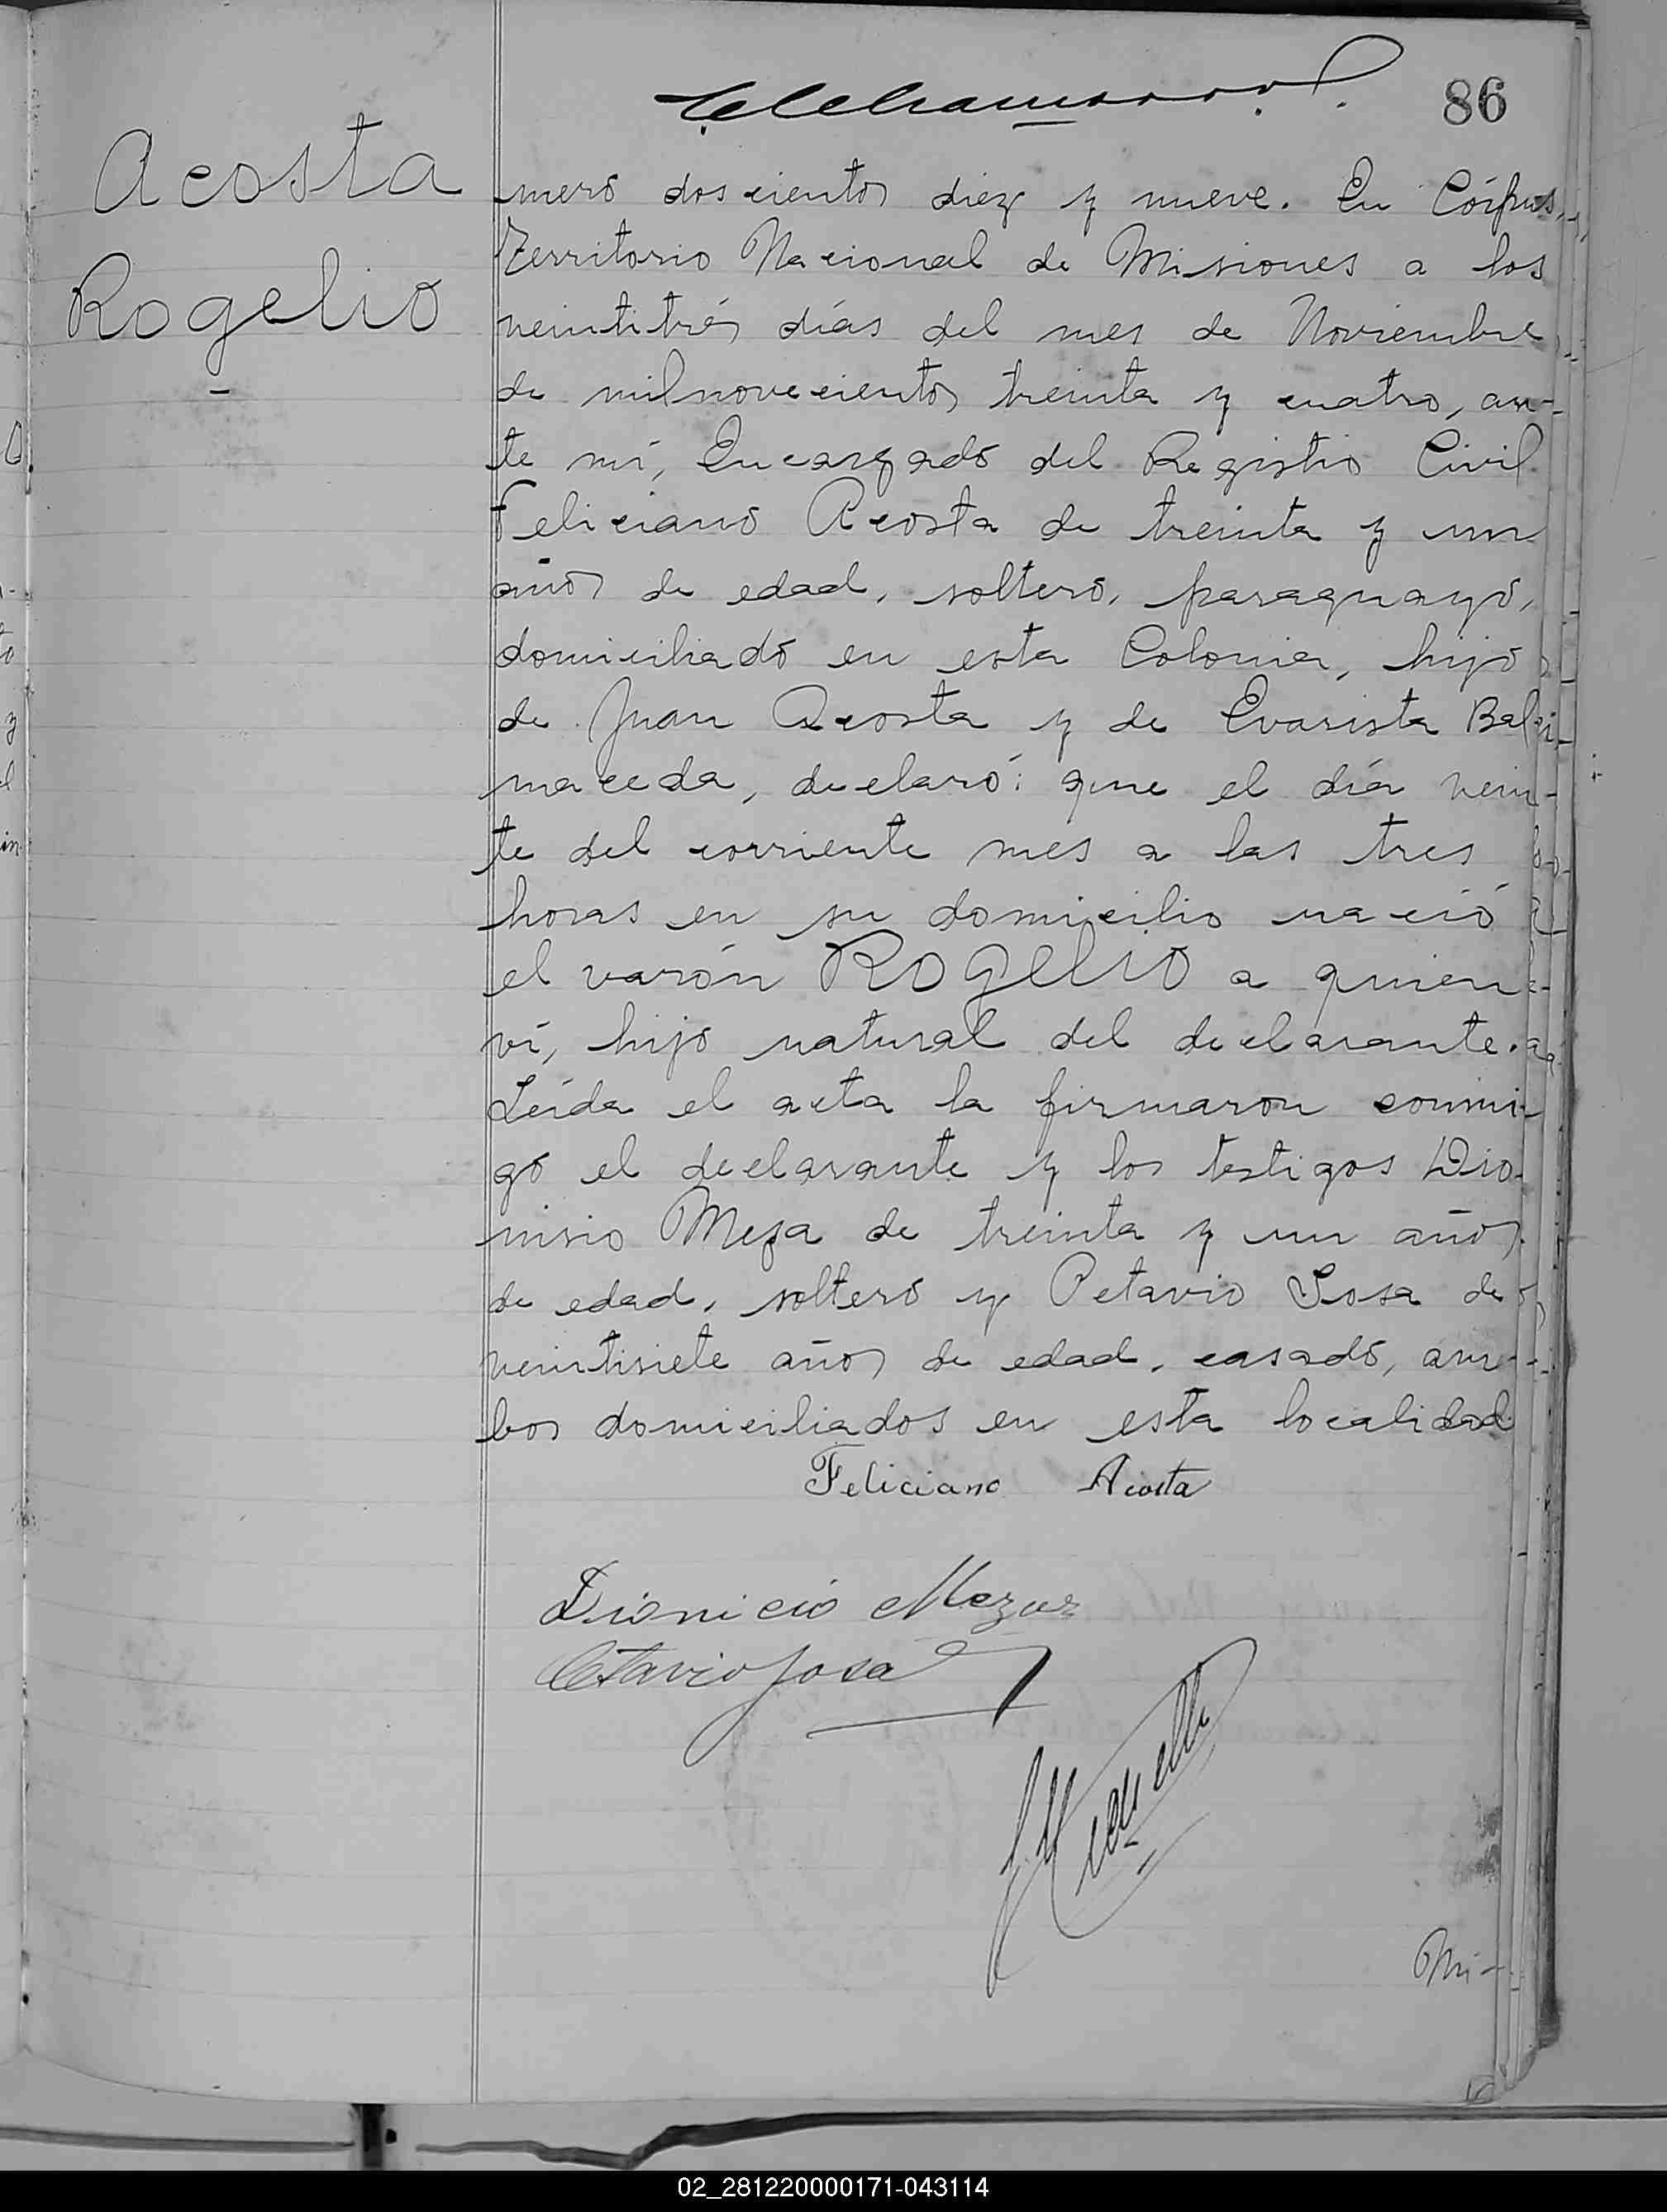 86
Acosta
Rogelio
mero doscientos diez y nueve. En Córpus,
Territorio Nacional de Misiones a los
veintitrés días del mes de Noviembre
de milnovecientos treinta y cuatro, an-
te mí, Encargado del Registro Civil
Feliciano Acosta de treinta y un
años de edad, soltero, paraguayo,
domiciliado en esta Colonia, hijo
de Juan Acosta y de Evarista Bal
maceda, declaró: que el día vein-
te del corriente mes a las tres
horas en su domicilio nació
el varón ROGELIO a quien
ví, hijo natural del declarante.
Leída el acta la firmaron conmi-
go el declarante y los testigos Dio-
nisio Meza de treinta y un años
de edad, soltero y Octavio Sosa de
veintisiete años de edad, casado, am-
bos domiciliados en esta localidad
Feliciano Acosta
Dionicio Meza
Octavio Sosa
Mi-
02_281220000171-043114